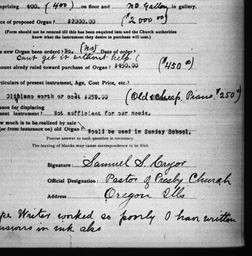 400. (400) on floor and no gallery in gallery.
ce of proposed Organ? $2000.00 ($2000.00)
(Form should not be returned till this has been enquired into and the Church authorities
know what the instrument they desire to purchase will cost.)
new Organ been ordered? No. (No) Date of order?
Cant get it without help (
mount already raised toward purchase of Organ? $450.00 ($450.00)
rticulars of present instrument, Age, Cost Price, etc.?
worth or cost $250.00 (Old & cheap, Piano $250)
son for displacing
sent instrument? Not sufficient for our needs.
w much is to be realized by sale
(or from insurance on) old Organ? Would be used in Sunday School.
Precise answer to each question is necessary.
The leaving of blanks may cause correspondence to be filed.
Signature: Samuel S. Cryor
Official Designation: Pastor of Presby Church
Address: Oregon Ills
ype Writer worked so poorly I have written
in ink also